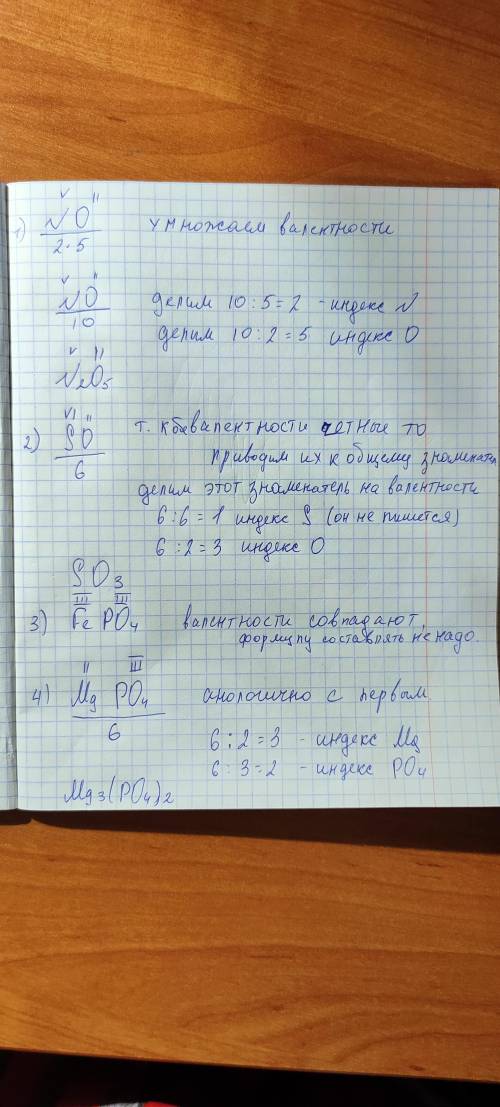 V II
1) NO умножаем валентности
2·5
V II
NO делим 10:5=2 - индекс N
10 делим 10:2=5 индекс O
V II
N2O5
VI II
2) SO т. к валентности четные то
6 приводим их к общему знаменател
делим этот знаменатель на валентности
6:6=1 индекс S (он не пишется)
6:2=3 индекс O
SO3
III III
3) Fe PO4 валентности совпадают,
формулу составлять не надо.
II III
4) Mg PO4 анологично с первым
6
6:2=3 - индекс Mg
6:3=2 - индекс PO4
Mg3(PO4)2